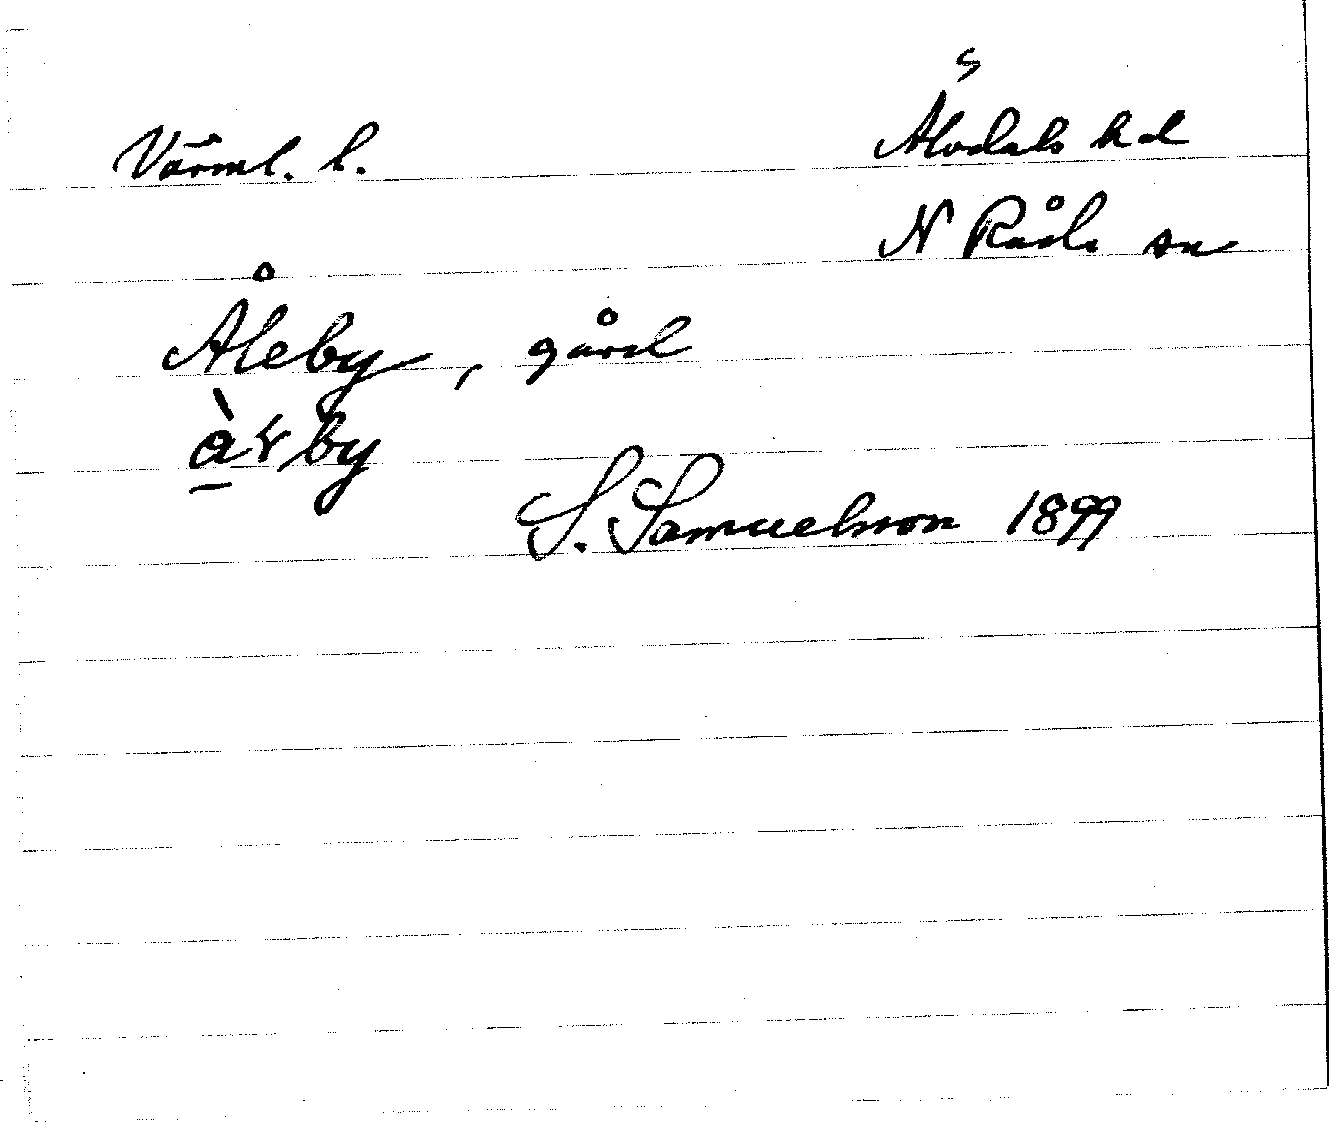 Värml. l.
Älvdals hd
N Råda sn
Åleby, gård
à̱ɤby
S. Samuelsson 1899